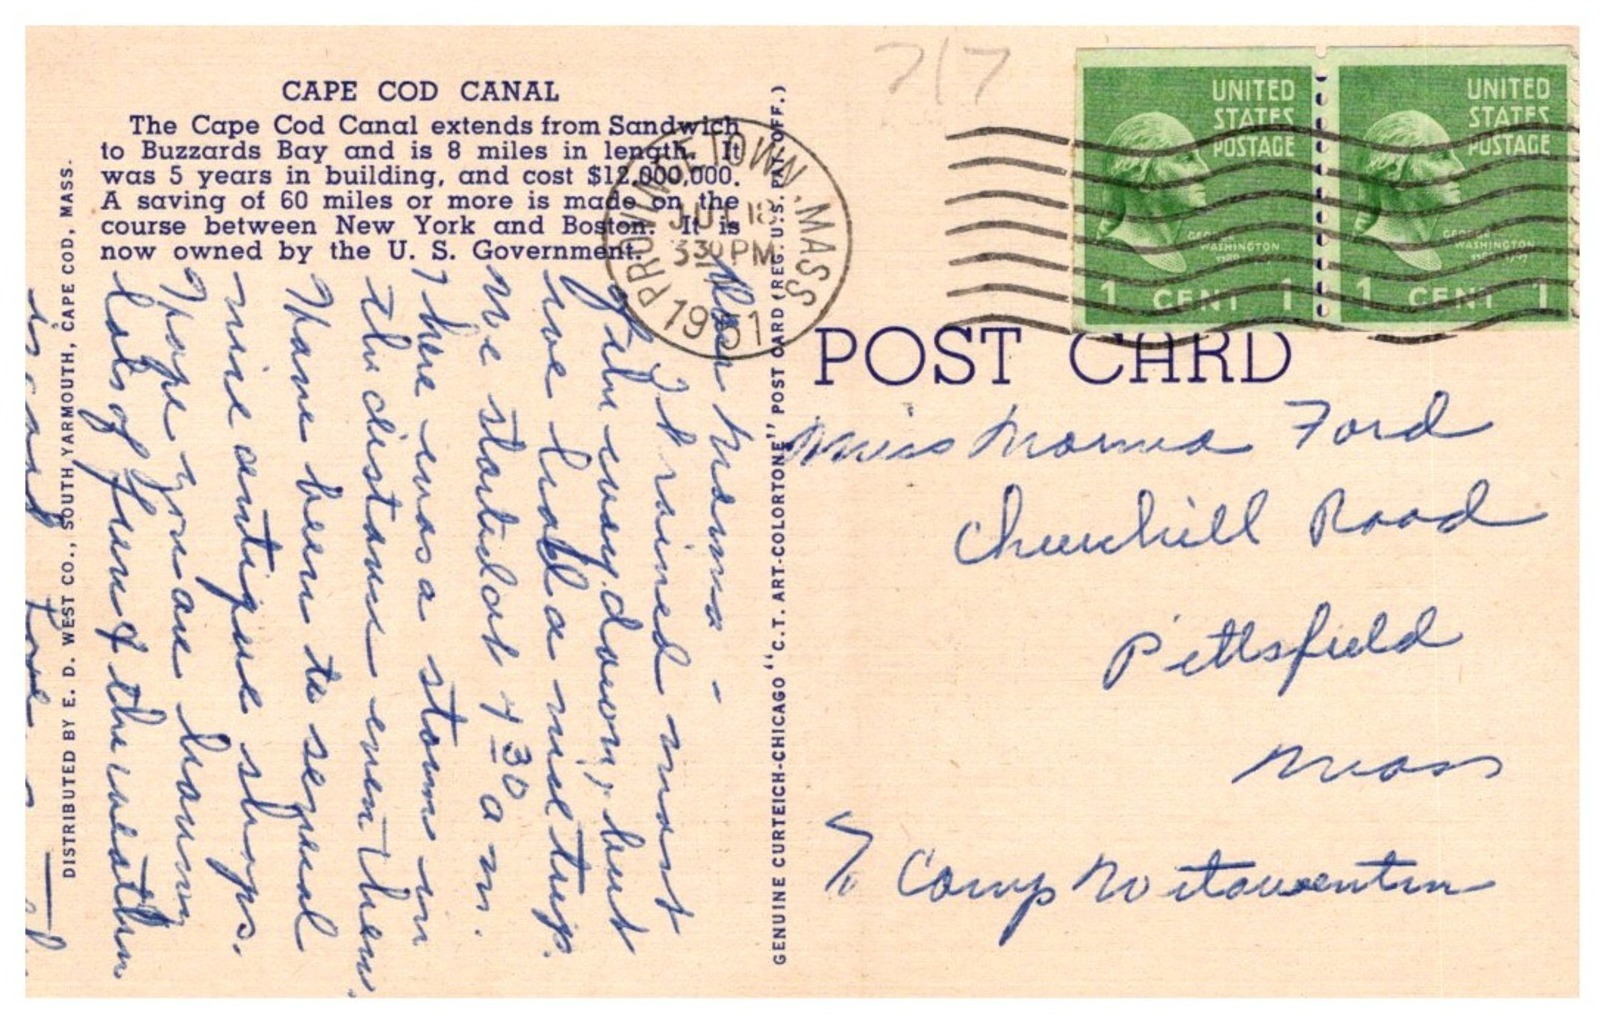 CAPE COD CANAL
The Cape Cod Canal extends from Sandwich
to Buzzards Bay and is 8 miles in length. It
was 5 years in building, and cost $12,000,000.
A saving of 60 miles or more is made on the
course between New York and Boston. It is
now owned by the U. S. Government.
717
PROVINCETOWN, MASS
JUL 18
3 30 PM
1951
UNITED
STATES
POSTAGE
GEORGE
WASHINGTON
1 CENT 1
UNITED
STATES
POSTAGE
GEORGE
WASHINGTON
1 CENT 1
POST CARD
Miss Ford
Churchill Road
Pittsfield
Mass
% Camp
Dear
It rained most
of the way down, but
we had a nice trip.
We started at 4 30 a m.
There was a storm in
the distance even then.
Have been to several
nice antique shops.
Hope you are having
lots of fun & the weather
is good Love
DISTRIBUTED BY E. D. WEST CO., SOUTH YARMOUTH, CAPE COD, MASS.
GENUINE CURTEICH-CHICAGO "C.T. ART-COLORTONE" POST CARD (REG. U.S. PAT. OFF.)